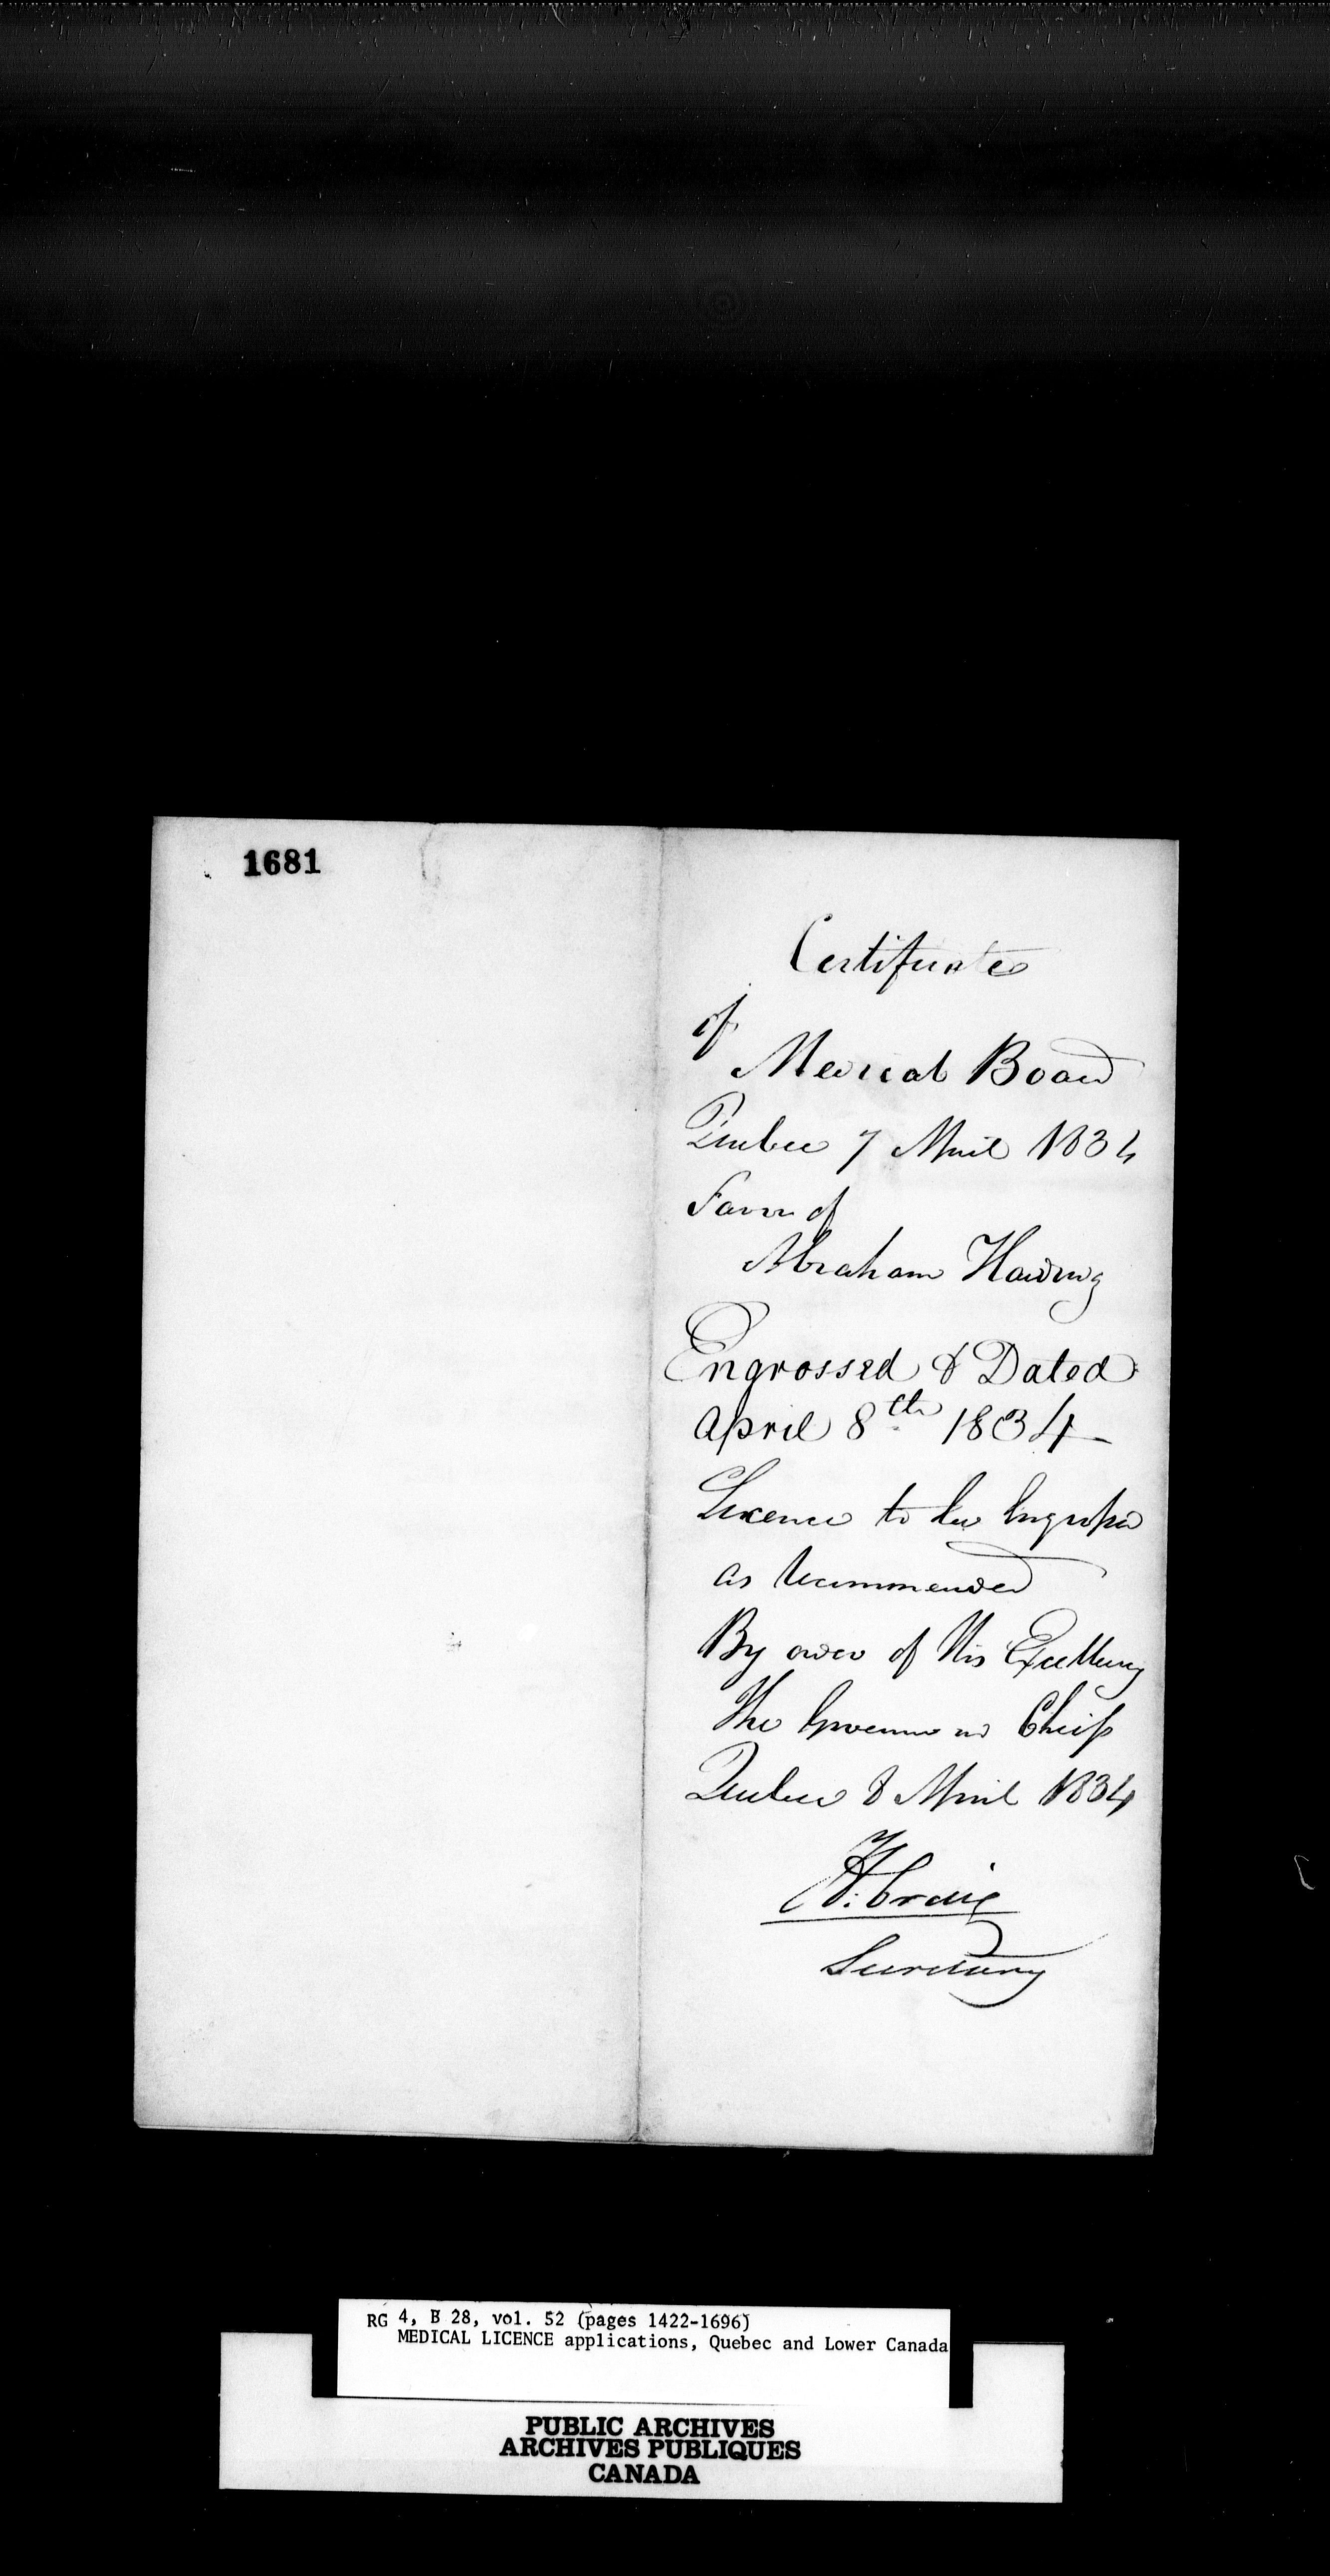 1681
Certificate
of
Medical Board
Quebec 7 April 1834
Favor of
Abraham Harding
Engrossed & Dated
April 8th 1834
Licence to be Engrossed
as recommended
By order of His Excellency
The Governor in Chief
Quebec 8 April 1834
H: Craig
Secretary
RG 4, B 28, vol. 52 (pages 1422-1696)
MEDICAL LICENCE applications, Quebec and Lower Canada
PUBLIC ARCHIVES
ARCHIVES PUBLIQUES
CANADA